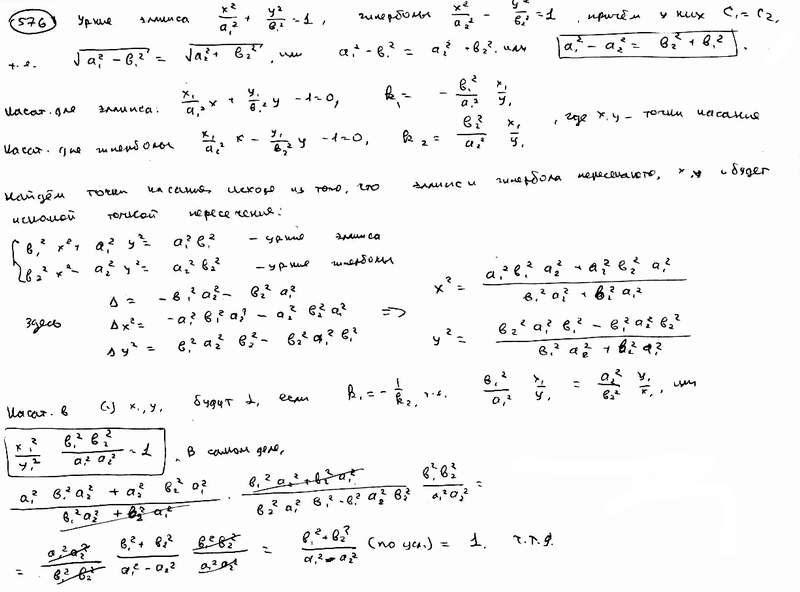 576 Ур-ние эллипса x²/a₁² + y²/b₁² = 1, гиперболы x²/a₂² − y²/b₂² = 1, причём у них c₁ = c₂,
т.е. √(a₁² − b₁²) = √(a₂² + b₂²), или a₁² − b₁² = a₂² + b₂² или a₁² − a₂² = b₂² + b₁².
Касат. для эллипса: x₁/a₁² x + y₁/b₁² y − 1 = 0, k₁ = − b₁²/a₁² x₁/y₁
Касат. для гиперболы x₁/a₂² x − y₁/b₂² y − 1 = 0, k₂ = b₂²/a₂² x₁/y₁, где x, y − точки касания
Найдём точки касания исходя из того, что эллипс и гипербола пересекаются, x, y и будет
искомой точкой пересечения:
b₁² x² + a₁² y² = a₁² b₁² − ур-ние эллипса
b₂² x² − a₂² y² = a₂² b₂² − ур-ние гиперболы
Здесь Δ = −b₁² a₂² − b₂² a₁²
Δx² = −a₁² b₁² a₂² − a₂² b₂² a₁² => x² = (a₁² b₁² a₂² + a₂² b₂² a₁²)/(b₁² a₂² + b₂² a₁²)
Δy² = b₁² a₂² b₂² − b₂² a₁² b₁² y² = (b₂² a₁² b₁² − b₁² a₂² b₂²)/(b₁² a₂² + b₂² a₁²)
Касат. в (·) x₁, y₁ будут ⊥, если k₁ = − 1/k₂, т.е. b₁²/a₁² x₁/y₁ = a₂²/b₂² y₁/x₁, или
x₁²/y₁² b₁² b₂²/a₁² a₂² = 1. В самом деле,
(a₁² b₁² a₂² + a₂² b₂² a₁²)/(b₁² a₂² + b₂² a₁²) · (b₁² a₂² + b₂² a₁²)/(b₂² a₁² b₁² − b₁² a₂² b₂²) b₁² b₂²/a₁² a₂² =
= a₁² a₂²/b₁² b₂² (b₁² + b₂²)/(a₁² − a₂²) b₁² b₂²/a₁² a₂² = (b₁² + b₂²)/(a₁² − a₂²) (по усл.) = 1. ч.т.д.